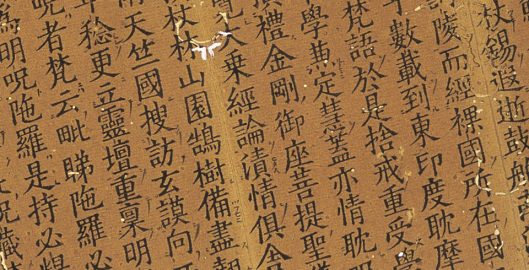 杖錫遐遊鼓舟
陵而經裸國所在國
數載到東印度耽摩
梵語於是捨戒重受學
學兼定慧蓋亦情耽明
禮金剛御座菩提聖
大乘經論漬情俱舍
杖林山園鵠樹備盡翹
天竺國搜訪玄謨向
年稔更立靈壇重稟明
呪者梵云毗睇陁羅必
為明呪陁羅是持必得
呪藏